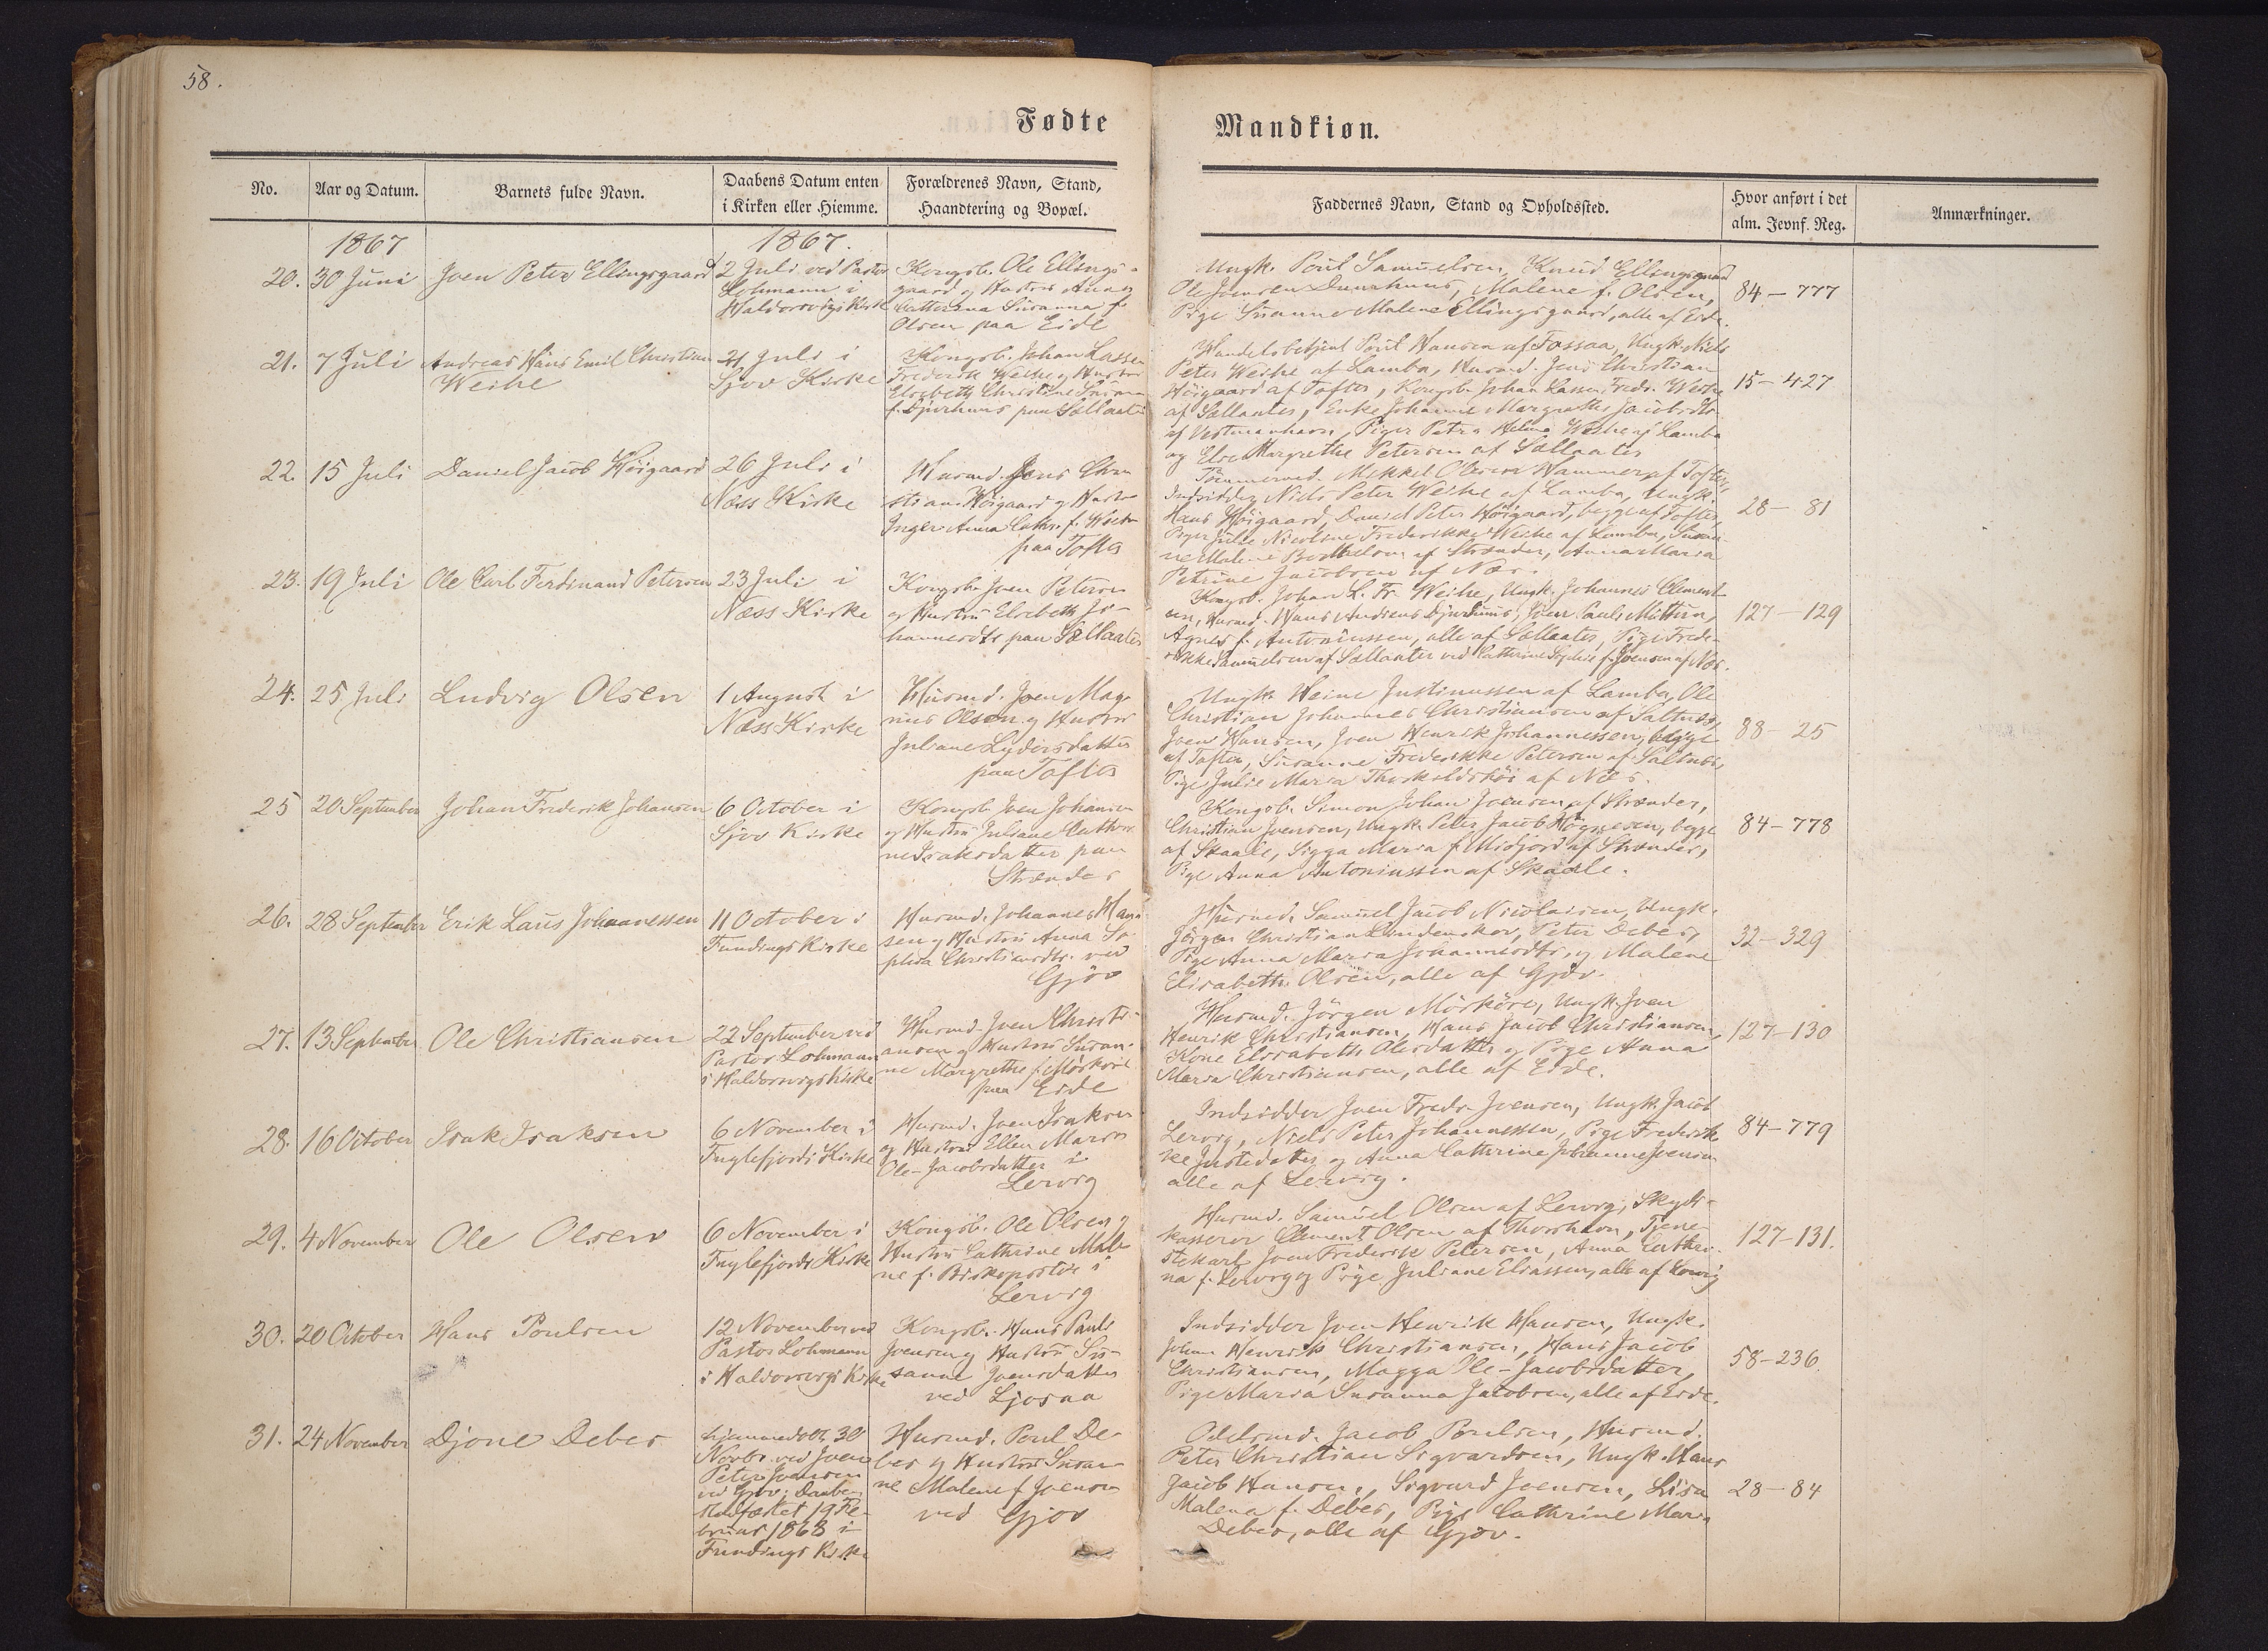 58.
Fødte
Mandkiøn.
No.
Aar og Datum.
Barnets fulde Navn.
Daabens Datum enten
i Kirken eller Hiemme.
Forældrenes Navn, Stand,
Haandtering og Bopæl.
Faddernes Navn, Stand og Opholdssted.
Hvor anført i det
alm. Jevnf. Reg.
Anmærkninger.
1867
1867.
20.
30 Juni
Joen Peter Ellingsgaard
2 Juli ved Pastor
Lohmann i
Haldorsvigs Kirke
Kongsb. Ole Ellings-
gaard og Hustru Anna
Catharina Susanna f.
Olsen paa Eide
Ungk. Poul Samuelsen, Knud Ellingsgaard
Ole Joensen Dunnhuus, Malene f. Olsen,
Pige Susanne Malene Ellingsgaard, alle af Eide.
84 - 777
21.
7 Juli
Andreas Hans Emil Christian
Weihe
21 Juli i
Sjov Kirke
Kongsb. Johan Lassen
Frederik Weihe og Hustru
Elsebeth Christine Susanna
f. Djurhuus paa Sællaater
Handelsbetjent Poul Hansen af Fossaa, Ungk. Niels
Peter Weihe af Lamba, Husmd. Jens Christian
Höigaard af Tofter, Kongsb. Johan Lassen Fredr. Weihe
af Sællaater, Enke Johanne Margrethe Jacobsdtr.
af Vestmanhavn, Piger Petra Helena Weihe af Lamba
og Else Margrethe Petersen af Sællaater
15 - 427
22.
15 Juli
Daniel Jacob Höigaard
26 Juli i
Næss Kirke
Husmd. Jens Chri
stian Höigaard og Hustru
Inger Anna Cathr. f. Weihe
paa Tofter
Tömmermd. Mikkel Olesen Hammer af Tofter,
Indsidder Niels Peter Weihe af Lamba, Ungk.
Hans Höigaard, Daniel Peter Höigaard, begge af Tofter,
Piger Julie Nicoline Frederikke Weihe af Lamba, Susan-
ne Malene Berthelsen af Strænder, Anna Maria
Petrine Jacobsen af Næs.
28 - 81
23.
19 Juli
Ole Carl Ferdinand Petersen
23 Juli i
Næss Kirke
Kongsb. Joen Petersen
og Hustru Elsebeth Jo-
hannesdtr paa Sællaater
Kongsb. Johan L. Fr. Weihe, Ungk. Johannes Clement
sen, Husmd. Hans Andreas Djurhuus, Joen Pauli Mittun,
Agnes f. Antoniussen, alle af Sællaater, Pige Frede-
rikke Samuelsen af Sællaater ved Cathrine Sophie f. Joensen af Næs.
127 - 129
24.
25 Juli
Ludvig Olsen
1 August i
Næss Kirke
Husmd. Joen Mag-
nus Olsen og Hustru
Juliane Lydersdatter
paa Tofter
Ungk. Heine Justinussen af Lamba, Ole
Christian Johannes Christiansen af Saltnes,
Joen Hansen, Joen Henrik Johannessen, begge
af Tofter, Susanne Frederikke Petersen af Saltnes,
Pige Julie Maria Thorkeldshöi af Næs.
88 - 25
25
20 September
Johan Frederik Johansen
6 October i
Sjov Kirke
Kongsb. Joen Johansen
og Hustru Juliane Cathri
ne Isaksdatter paa
Strænder
Kongsb. Simon Johan Joensen af Strænder,
Christian Joensen, Ungk. Peter Jacob Högnesen, begge
af Skaale, Sigga Maria f. Midfjord af Strænder,
Pige Anna Antoniussen af Skaale.
84 - 778
26.
28 September
Erik Laus Johannessen
11 October i
Fundings Kirke
Husmd. Johannes Han-
sen og Hustru Anna So
phia Christiansdtr. ved
Gjöv
Husmd. Samuel Jacob Nicolaisen, Ungk.
Jörgen Christian Lindenskov, Peter Debes,
Pige Anna Maria Johannesdtr. og Malene
Elisabeth Olsen, alle af Gjöv.
32 - 329
27.
13 September
Ole Christiansen
22 September ved
Pastor Lohmann
i Haldorsvigs Kirke
Husmd. Joen Christi-
ansen og Hustru Susan-
ne Margrethe f. Mörköre
paa Eide
Husmd. Jörgen Mörköre, Ungk. Joen
Henrik Christiansen, Hans Jacob Christiansen,
Kone Elisabeth Olesdatter og Pige Anna
Maria Christiansen, alle af Eide.
127 - 130
28.
16 October
Isak Isaksen
6 November i
Fuglefjords Kirke
Husmd. Joen Isaksen
og Hustru Ellen Maria
Ole-Jacobsdatter i
Lervig
Indsidder Joen Fredr. Joensen, Ungk. Jacob
Lervig, Niels Peter Johannessen, Pige Frederik
ke Justesdatter og Anna Cathrine Johanne Joensen
alle af Lervig.
84 - 779
29.
4 November
Ole Olsen
6 November i
Fuglefjords Kirke
Kongsb. Ole Olsen og
Hustru Cathrine Male
ne f. Biskopstöe i
Lervig
Husmd. Samuel Olsen af Lervig, Skyds-
kasserer Clement Olsen af Thorshavn, Tjene-
stekarl Joen Frederik Petersen, Anna Cathri-
na f. Lervig og Pige Juliane Eliassen, alle af Lervig
127 - 131.
30.
20 October
Hans Poulsen
12 November ved
Pastor Lohmann
i Haldorsvigs Kirke
Kongsb. Hans Pauli
Joensen og Hustru Su-
sanne Joensdatter
ved Ljosaa
Indsidder Joen Henrik Hansen, Ungk.
Johan Henrik Christiansen, Hans Jacob
Christiansen, Magga Ole-Jacobsdatter,
Pige Maria Susanna Jacobsen, alle af Eide.
58 - 236.
31.
24 November
Djone Debes
hjemmedöbt 30
Novbr. ved Joen
Peter Joensen
ved Gjöv; Daaben
stadfæstet 19 Fe-
bruar 1868 i
Fundings Kirke
Husmd. Poul De-
bes og Hustru Susan-
ne Malene f. Joensen
ved Gjov
Odelsmd. Jacob Poulsen, Husmd.
Peter Christian Sigvardsen, Ungk. Hans
Jacob Hansen, Sigvard Joensen, Lisa
Malena f. Debes, Pige Cathrine Maria
Debes, alle af Gjöv.
28 - 84